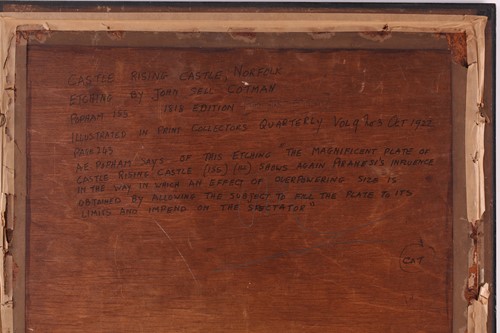 CASTLE RISING CASTLE, NORFOLK
ETCHING BY JOHN SELL COTMAN
POPHAM 163 1818 EDITION
ILLUSTRATED IN PRINT COLLECTORS QUARTERLY VOL 9 No3 OCT 1922
PAGE 263
AE POPHAM SAYS OF THIS ETCHING "THE MAGNIFICENT PLATE OF
CASTLE RISING CASTLE [ ] SHOWS AGAIN PIRANESI'S INFLUENCE
IN THE WAY IN WHICH AN EFFECT OF OVERPOWERING SIZE IS
OBTAINED BY ALLOWING THE SUBJECT TO FILL THE PLATE TO ITS
LIMITS AND IMPEND ON THE SPECTATOR"
CAT